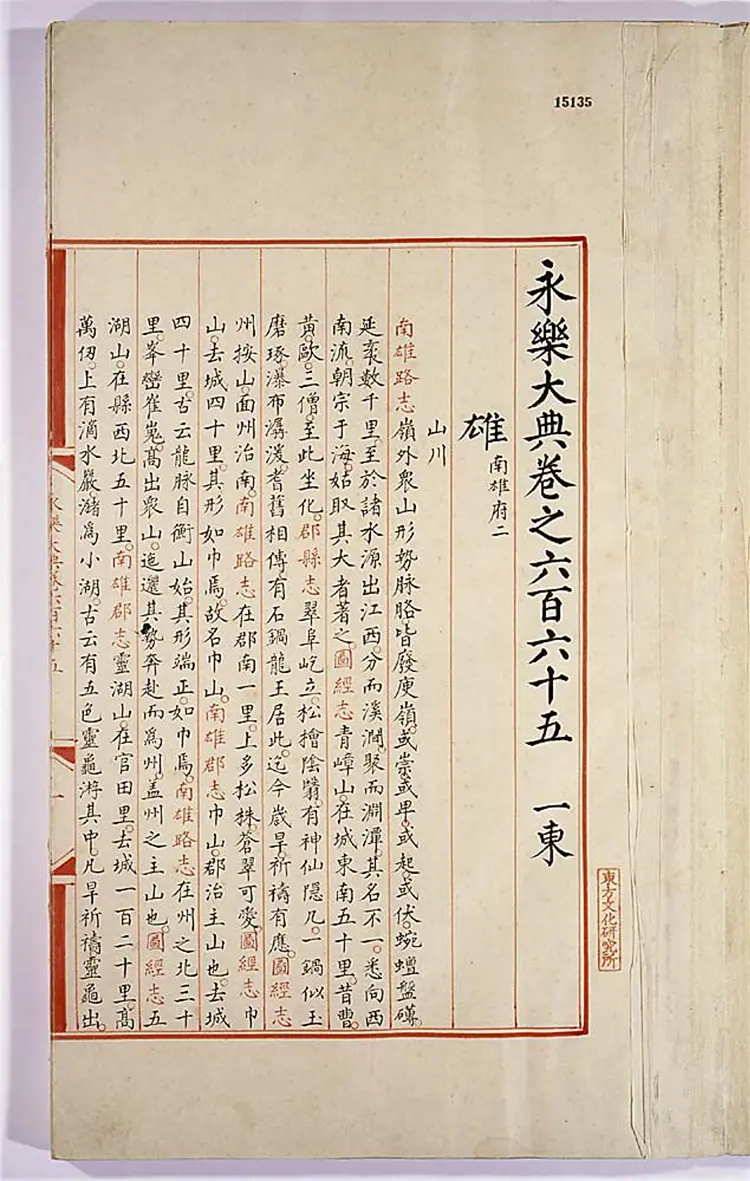 15135
永樂大典卷之六百六十五 一東
雄 南雄府二
山川
南雄路志嶺外衆山形勢脉胳皆廢庾嶺。或崇或卑。或起或伏。蜿蟺盤礴。
延袤數千里。至於諸水源出江西。分而溪澗。聚而淵潭。其名不一。悉向西
南流。朝宗于海。姑取其大者著之。圖經志青嶂山。在城東南五十里。昔曹。
黄。歐。三僧。至此坐化。郡縣志翠阜屹立。松檜陰翳。有神仙隱几。一鍋似玉
磨琢。瀑布潺湲。耆舊相傳有石鍋龍王居此。迄今歲旱。祈禱有應。圖經志
州按山。面州治南。南雄路志在郡南一里。上多松株。蒼翠可愛。圖經志巾
山。去城四十里。其形如巾焉。故名巾山。南雄郡志巾山。郡治主山也。去城
四十里。古云龍脉自衡山始。其形端正。如巾焉。南雄路志在州之北三十
里。峯巒崔嵬。髙出衆山。迤邐其勢奔赴而爲州。盖州之主山也。圖經志五
湖山。在縣西北五十里。南雄郡志靈湖山。在官田里。去城一百二十里。髙
萬仭。上有滴水巖。潴爲小湖。古云有五色靈龜游其中。凡旱祈禱。靈龜出。
永樂大典卷六百六十五
一
東方文化研究所